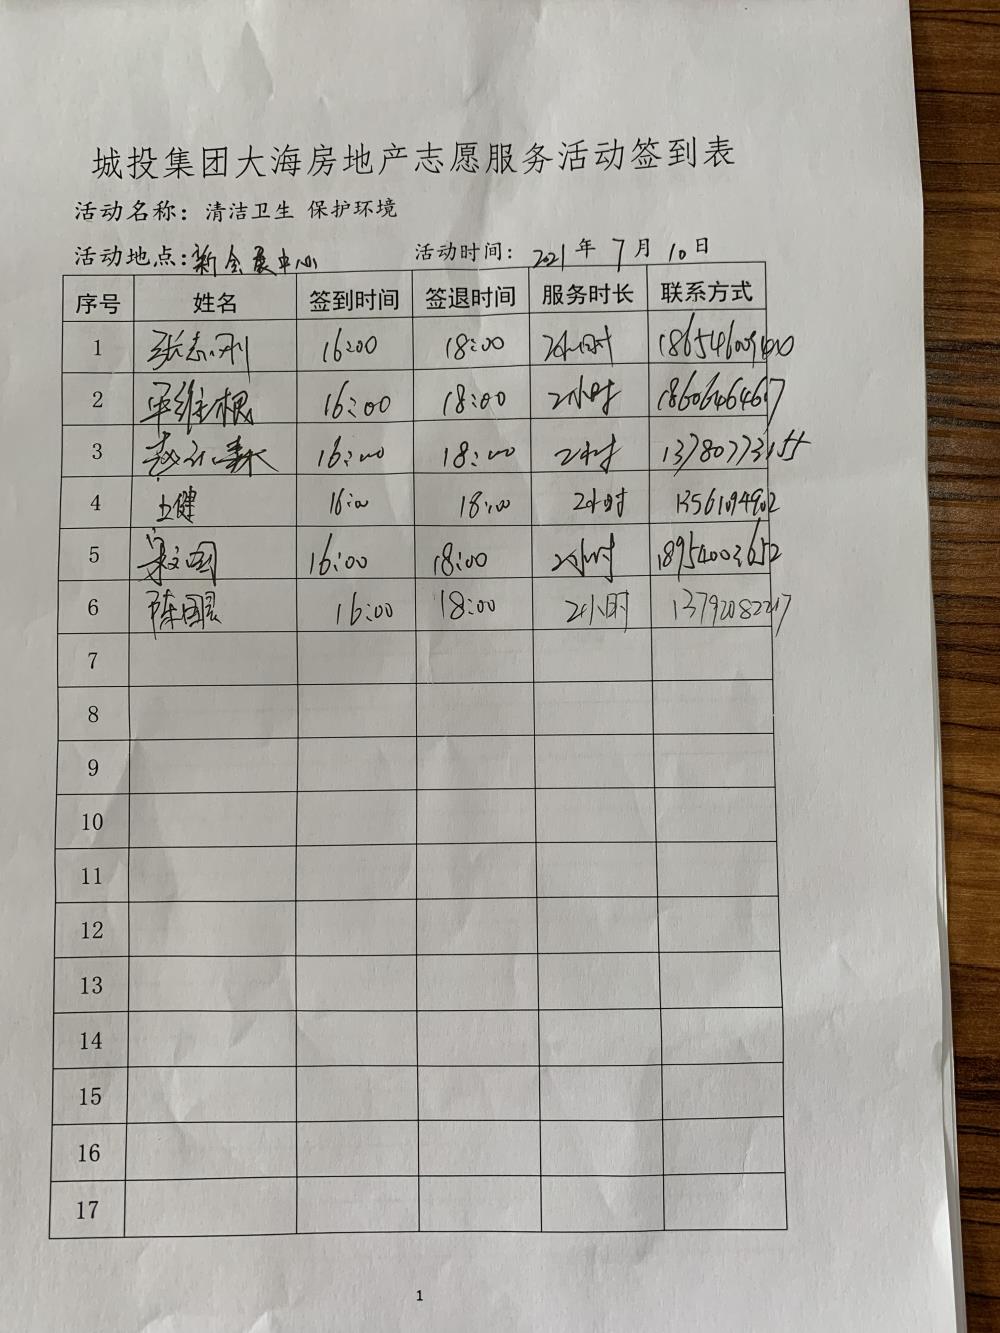 城投集团大海房地产志愿服务活动签到表
活动名称：清洁卫生 保护环境
活动地点：新会展中心 活动时间：2021年7月10日
序号 姓名 签到时间 签退时间 服务时长 联系方式
1 张志刚 16:00 18:00 2小时
2 单维根 16:00 18:00 2小时
3 16:00 18:00 2小时 13780773155
4 王健 16:00 18:00 2小时
5 16:00 18:00 2小时 18954003652
6 陈国 16:00 18:00 2小时 13792082217
7
8
9
10
11
12
13
14
15
16
17
1